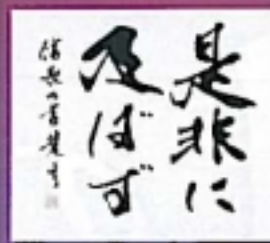 是非に
及ばず